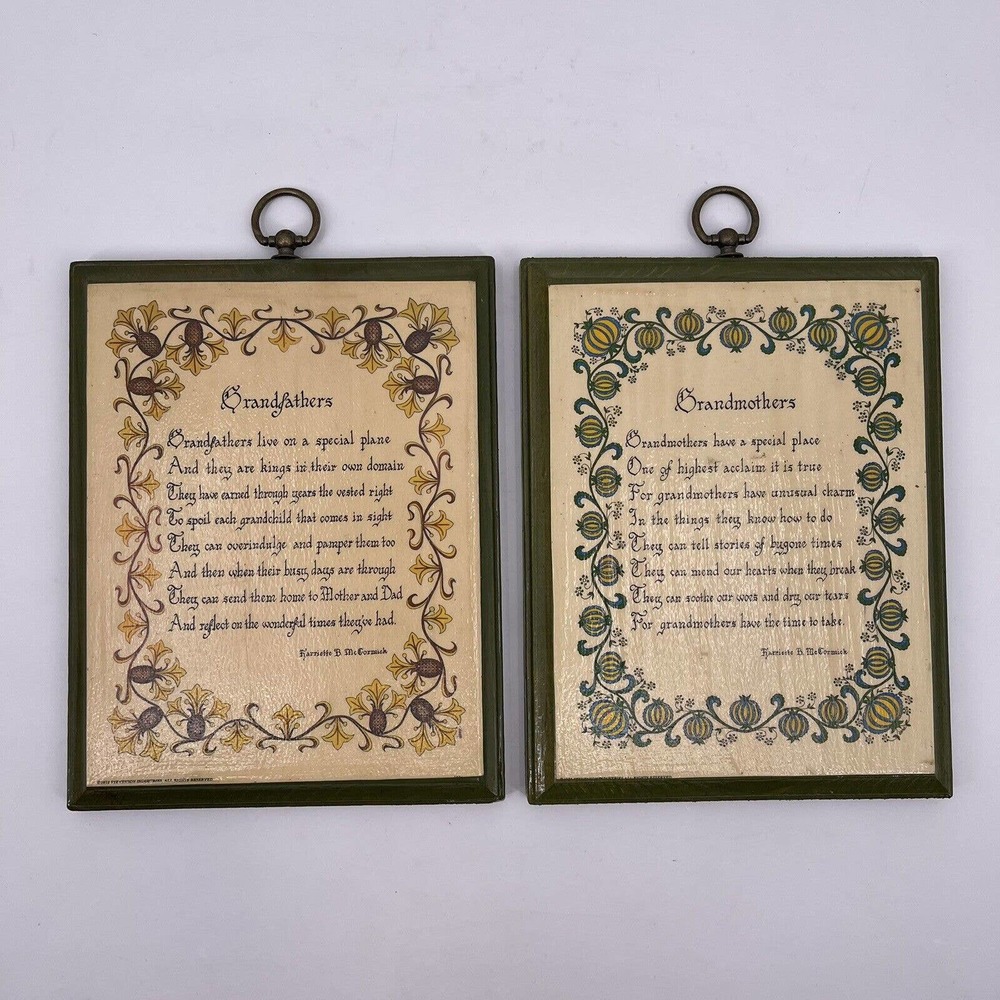 Grandfathers
Grandfathers live on a special plane
And they are kings in their own domain
They have earned through years the vested right
To spoil each grandchild that comes in sight
They can overindulge and pamper them too
And then when their busy days are through
They can send them home to Mother and Dad
And reflect on the wonderful times they've had.
Harriette B. McCormick
ALL RIGHTS RESERVED
Grandmothers
Grandmothers have a special place
One of highest acclaim it is true
For grandmothers have unusual charm
In the things they know how to do
They can tell stories of bygone times
They can mend our hearts when they break
They can soothe our woes and dry our tears
For grandmothers have the time to take.
Harriette B. McCormick